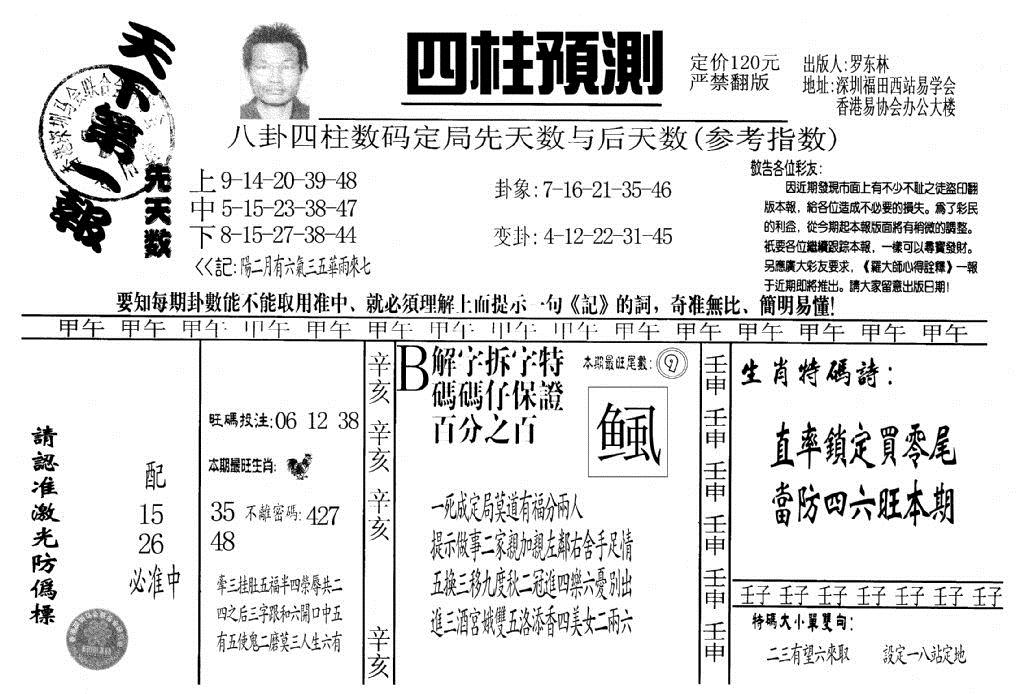 天下第一報
四柱預測
定价120元
严禁翻版
出版人:罗东林
地址:深圳福田西站易学会
香港易协会办公大楼
八卦四柱数码定局先天数与后天数(参考指数)
先天数
上 9-14-20-39-48
中 5-15-23-38-47
下 8-15-27-38-44
卦象: 7-16-21-35-46
变卦: 4-12-22-31-45
<<記: 陽二月有六氣三五華雨來七
敬告各位彩友:
因近期發現市面上有不少不耻之徒盜印翻
版本報,給各位造成不必要的損失。爲了彩民
的利益,從今期起本報版面將有稍微的調整。
祇要各位繼續跟踪本報,一樣可以尋寶發財。
另應廣大彩友要求,《羅大師心得詮釋》一報
于近期即將推出。請大家留意出版日期!
要知每期卦數能不能取用准中、就必須理解上面提示一句《記》的詞,奇准無比、簡明易懂!
甲午 甲午 甲午 甲午 甲午 甲午 甲午 甲午 甲午 甲午 甲午 甲午 甲午 甲午 甲午
請認准激光防僞標
配
15
26
必准中
旺碼投注:06 12 38
本期最旺生肖:
35 不離密碼:427
48
牽三挂肚五福半四榮辱共二
四之后三字跟和六開口中五
有五使鬼二磨莫三人生六有
辛亥 辛亥 辛亥 辛亥
B解字拆字特
碼碼仔保證
百分之百
本期最旺尾數:9
一死成定局莫道有福分兩人
提示做事二家親加親左鄰右舍手足情
五換三移九度秋二冠進四樂六憂別出
進三酒宮娥雙五洛添香四美女二兩六
壬申 壬申 壬申 壬申 壬申 壬申
生肖特碼詩:
直率鎖定買零尾
當防四六旺本期
壬子 壬子 壬子 壬子 壬子 壬子 壬子
特碼大小單雙句:
二三有望六來取 設定一八站定地